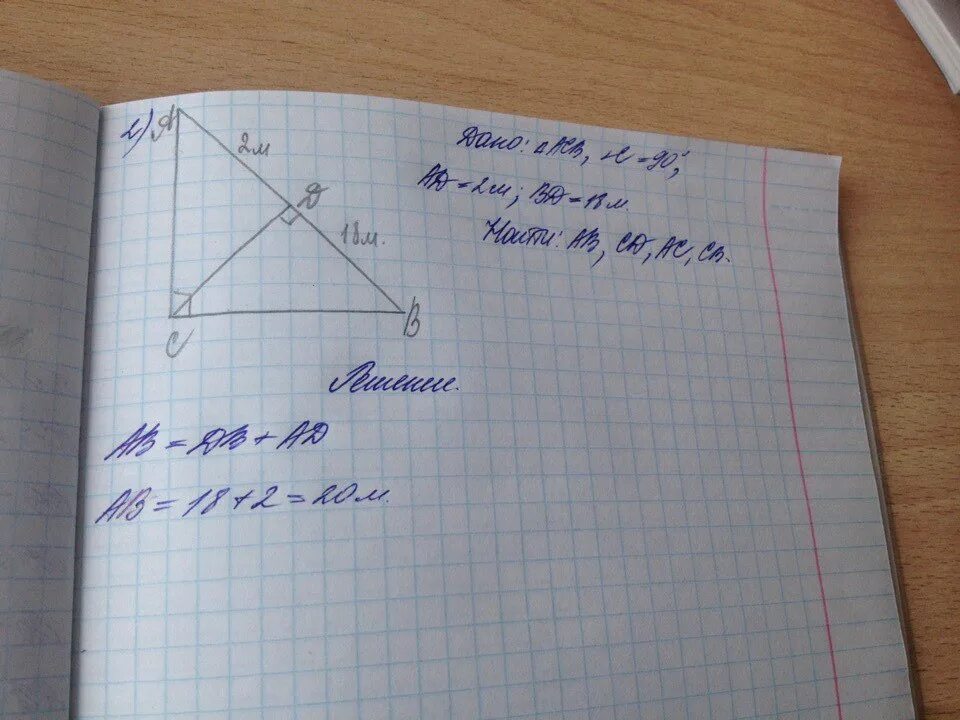 2)
A
2м
D
18м.
C
B
Дано: △ACB, ∠C = 90°,
AD = 2м; BD = 18м.
Найти: AB, CD, AC, CB.
Решение.
AB = DB + AD
AB = 18 + 2 = 20м.